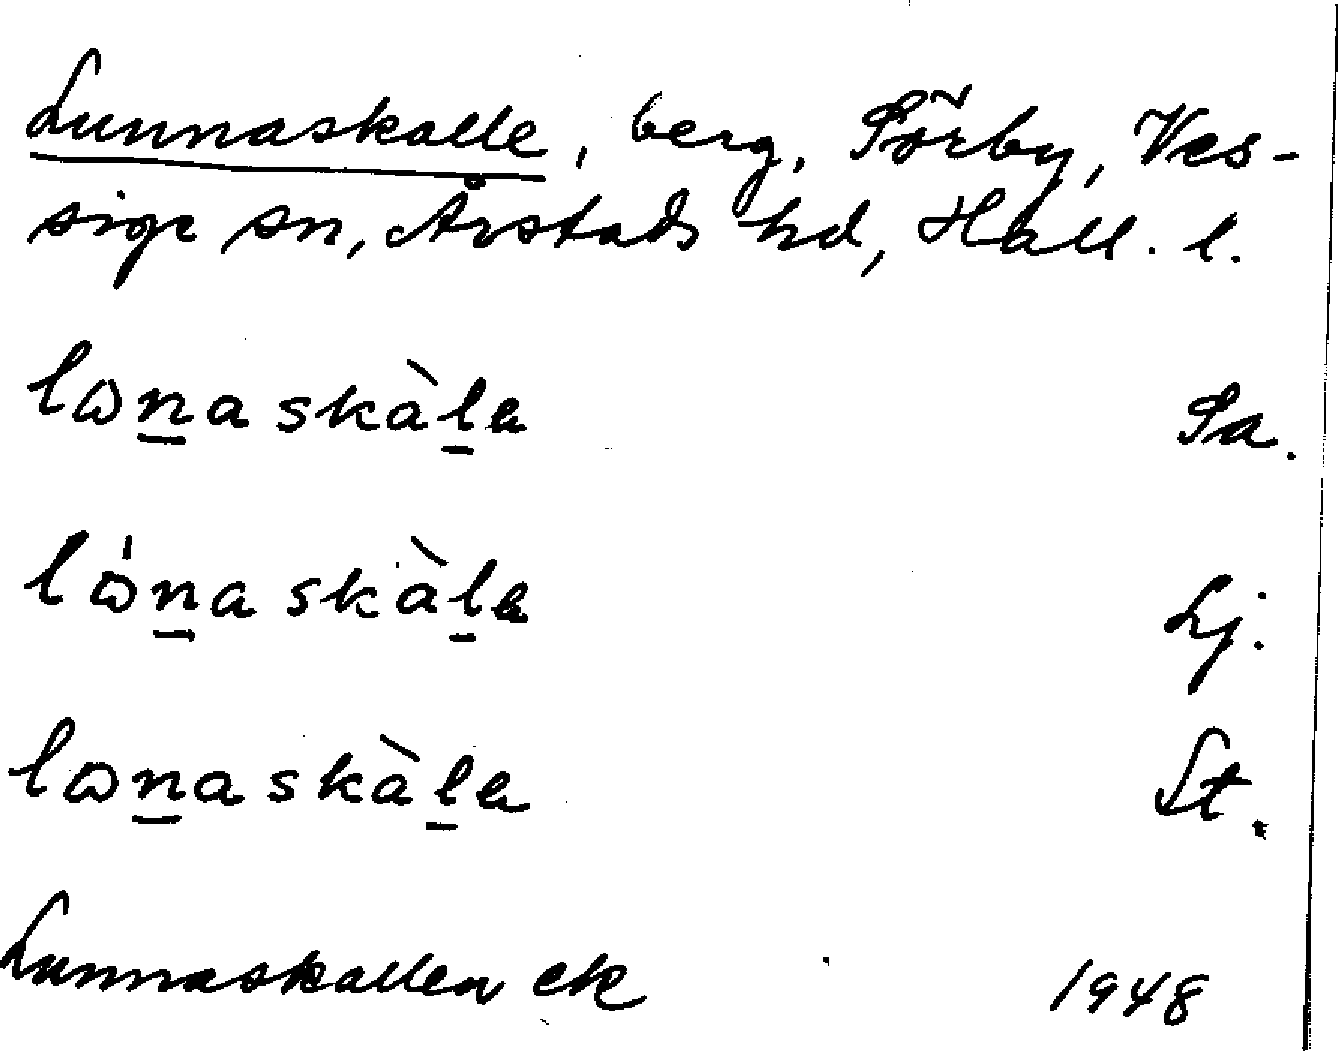 Lunnaskalle, berg, Sörby, Ves-
sige sn, Årstads hd, Hall. l.
lωn̲askàl̲ɐ Sa.
lω̍n̲askàl̲ɐ Lj.
lωn̲askàl̲ɐ St.
Lunnaskallen ek 1948